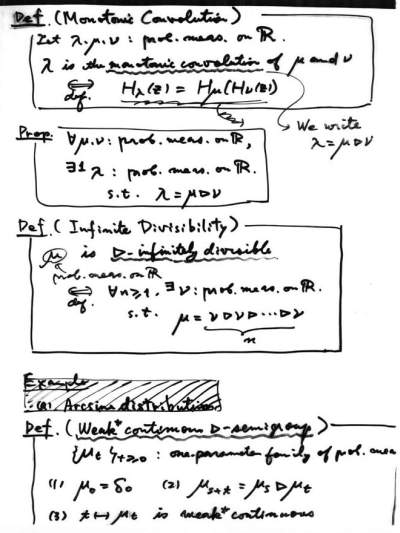 Def. (Monotonic Convolution)
Let λ, μ, ν : prob. meas. on ℝ.
λ is the monotonic convolution of μ and ν
⇔def. Hλ(z) = Hμ(Hν(z))
We write
λ = μ ▷ ν
Prop. ∀μ, ν : prob. meas. on ℝ,
∃1 λ : prob. meas. on ℝ.
s.t. λ = μ ▷ ν
Def. (Infinite Divisibility)
μ is ▷-infinitely divisible
prob. meas. on ℝ
⇔def. ∀n ≥ 1, ∃ν : prob. meas. on ℝ.
s.t. μ = ν ▷ ν ▷ ··· ▷ ν
n
Example
(a) Arcsine distribution
Def. (Weak* continuous ▷-semigroup)
{μt}t≥0 : one-parameter family of prob. meas
(1) μ0 = δ0 (2) μs+t = μs ▷ μt
(3) t ↦ μt is weak* continuous